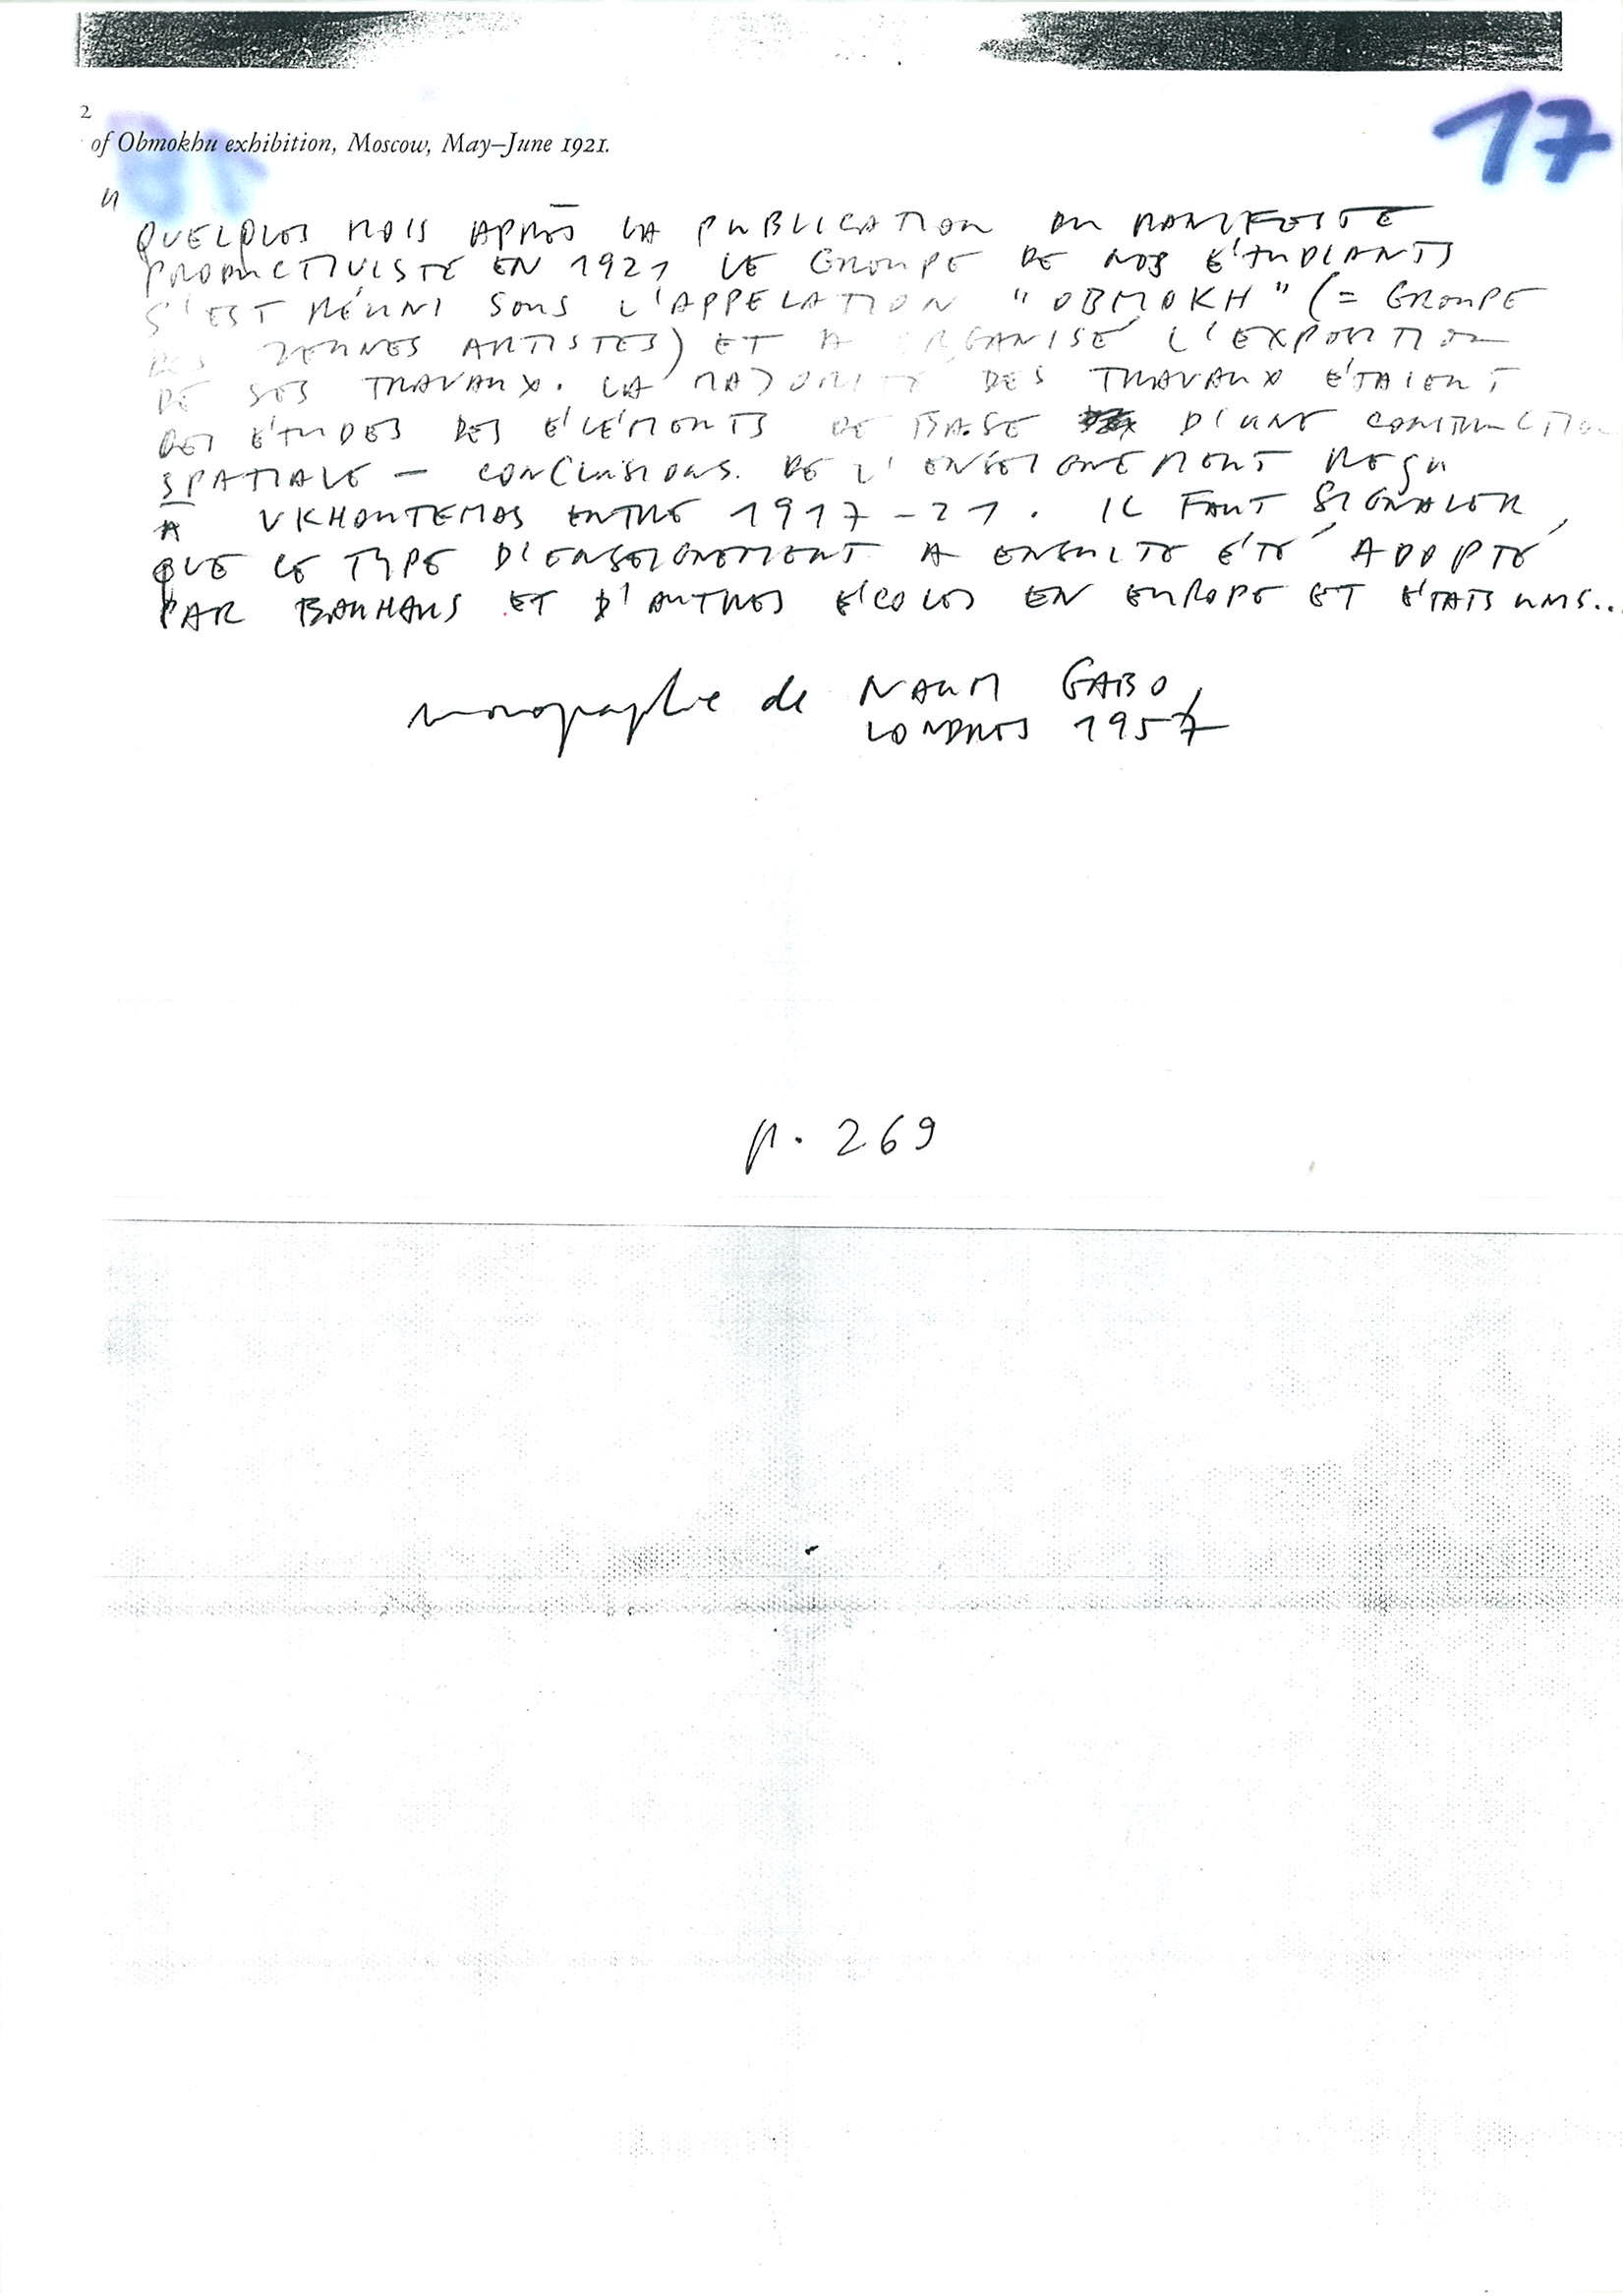 2
of Obmokhu exhibition, Moscow, May–June 1921.
17
"
QUELQUES MOIS APRÈS LA PUBLICATION DU MANIFESTE
PRODUCTIVISTE EN 1921 LE GROUPE DE NOS ÉTUDIANTS
S'EST RÉUNI SOUS L'APPELATION "OBMOKH" (= GROUPE
DES JEUNES ARTISTES) ET A ORGANISÉ L'EXPOSITION
DE SES TRAVAUX. LA MAJORITÉ DES TRAVAUX ÉTAIENT
DES ÉTUDES DES ÉLÉMENTS DE BASE D'UNE CONSTRUCTION
SPATIALE – CONCLUSIONS DE L'ENSEIGNEMENT REÇU
A VKHOUTEMAS ENTRE 1917-21. IL FAUT SIGNALER,
QUE CE TYPE D'ENSEIGNEMENT A ENSUITE ÉTÉ ADOPTÉ
PAR BAUHAUS ET D'AUTRES ÉCOLES EN EUROPE ET ÉTATS UNIS...
monographie de NAUM GABO,
LONDRES 1957
p. 269